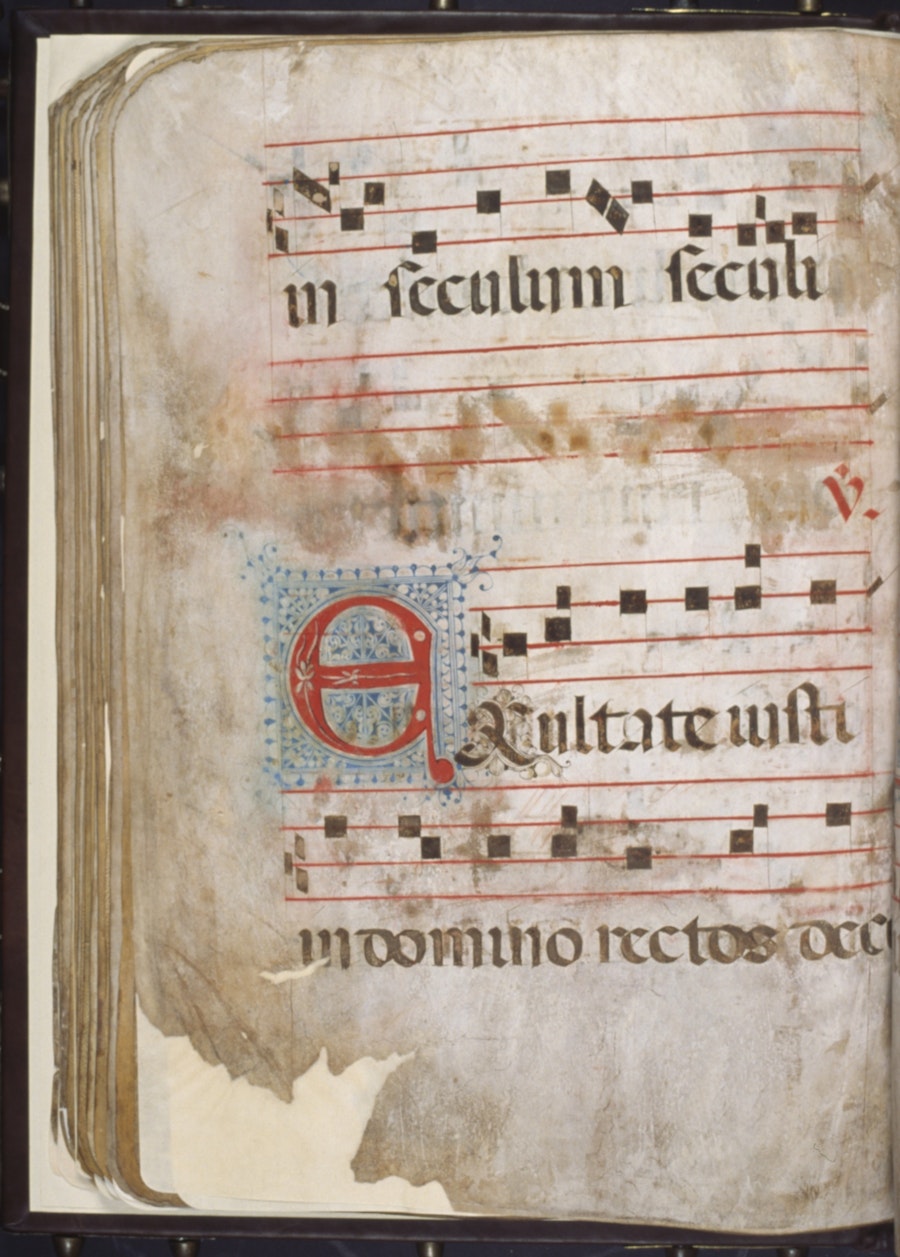 in seculum seculi
℣.
EXultate iusti
in domino rectos dece